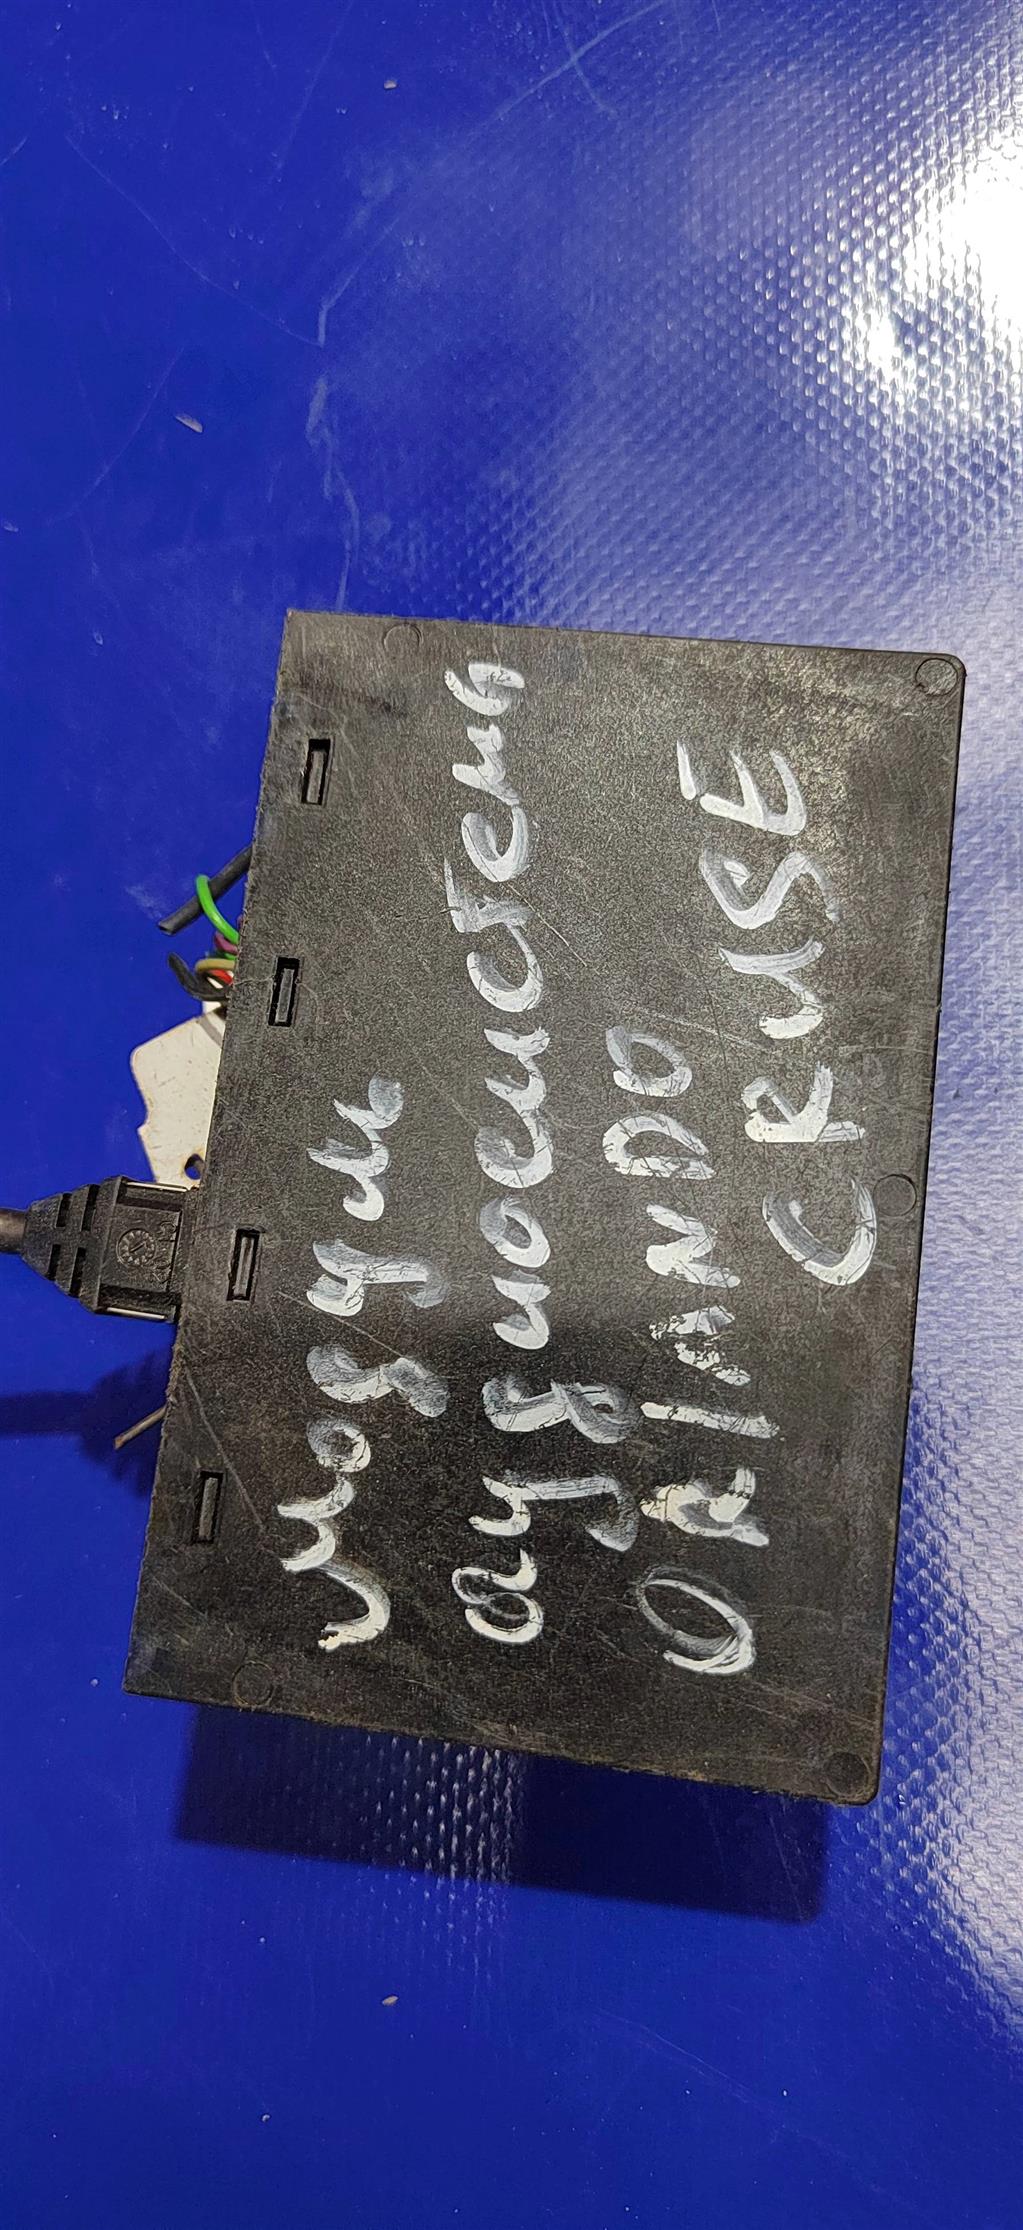 модули
аудиосистема
ORLANDO
CRUSE